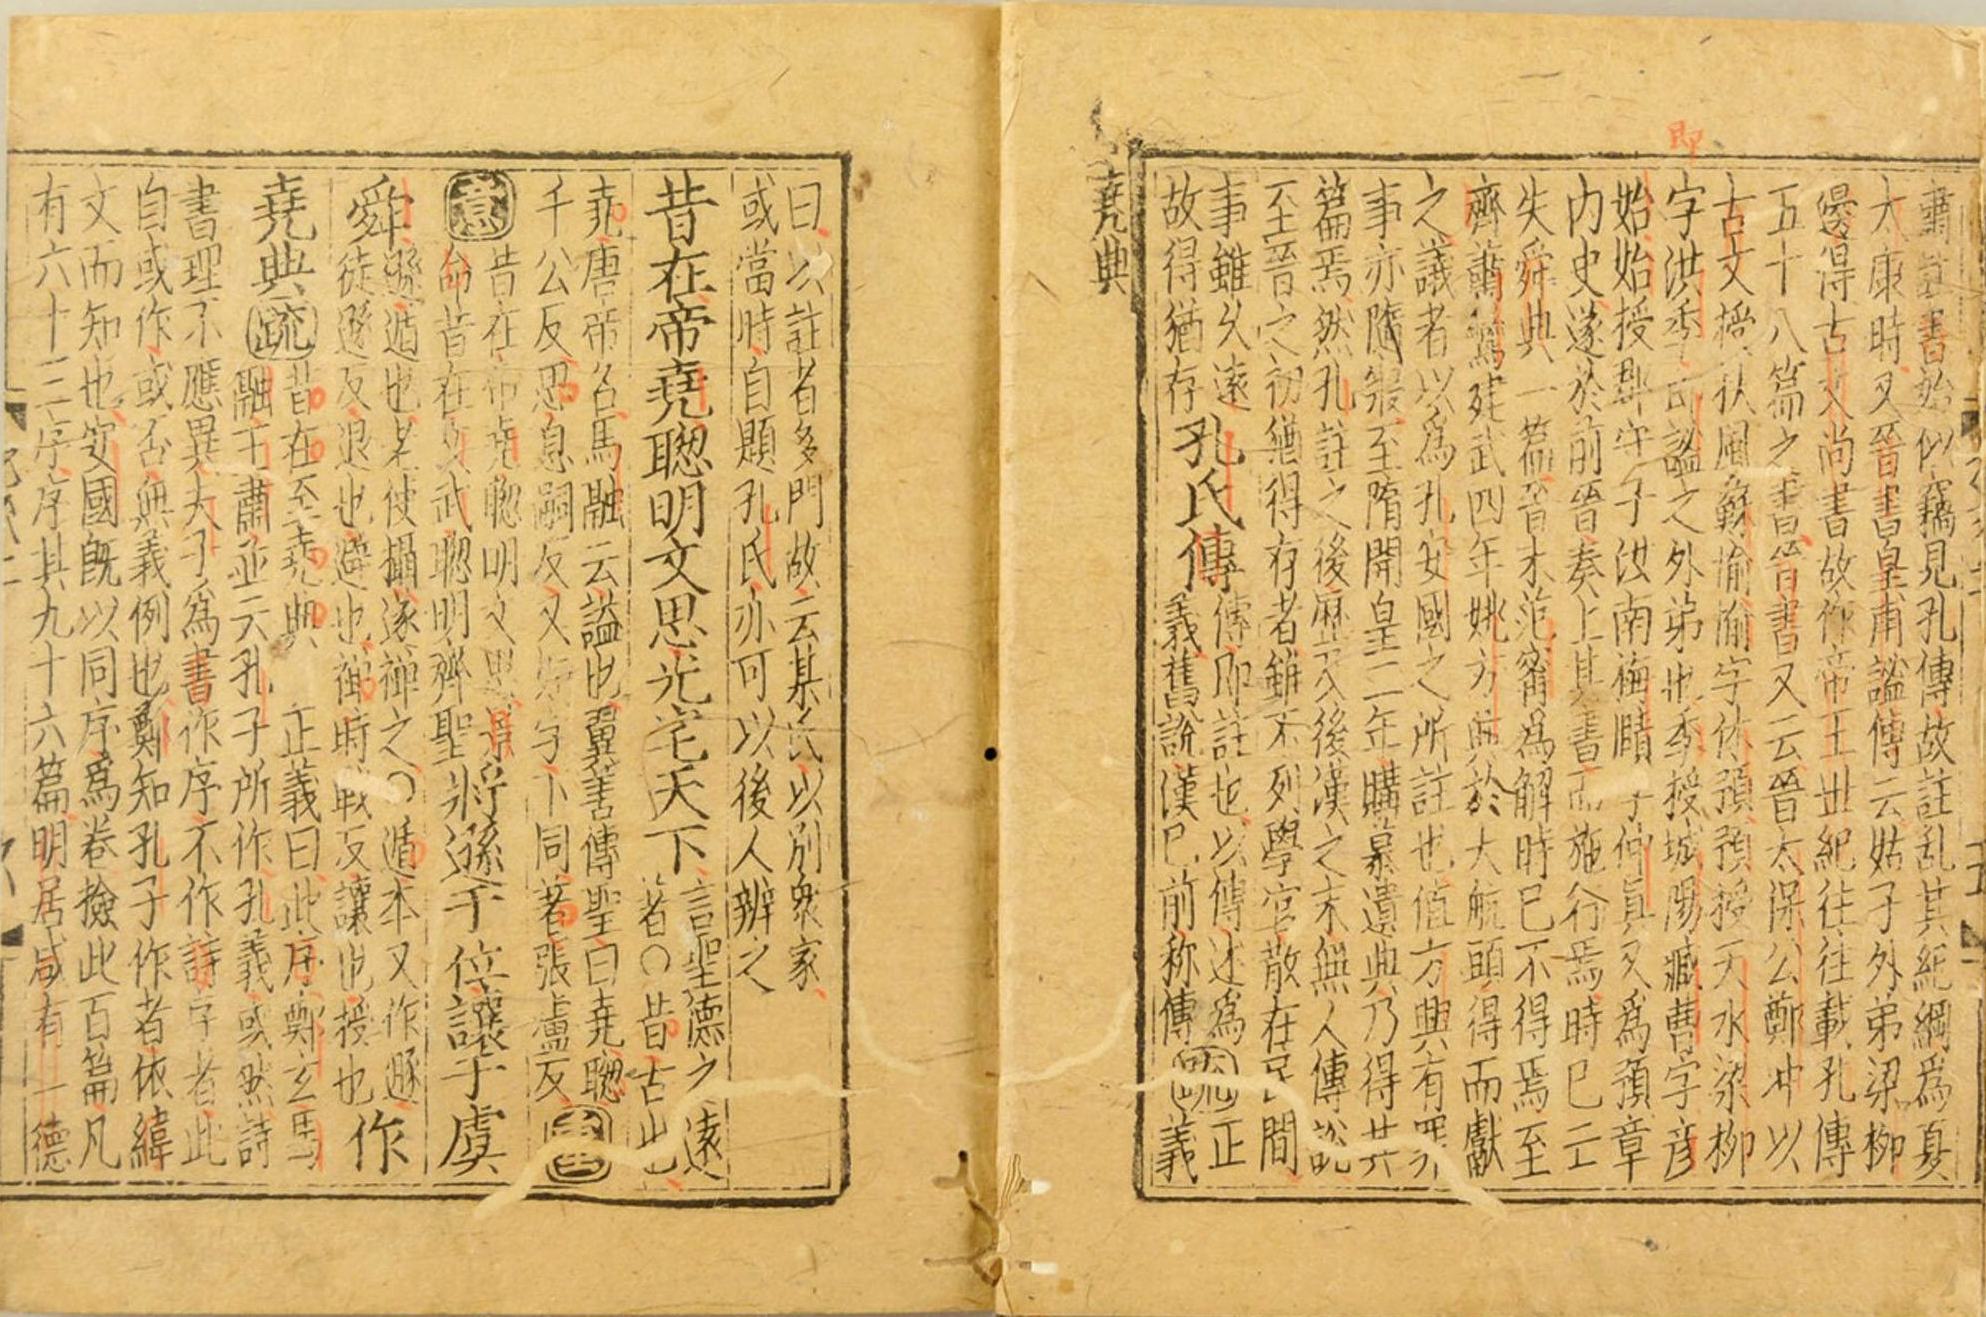 肅註書始似竊見孔傳故註乱其紀綱爲夏
太康時又晉書皇甫謐傳云姑子外弟梁柳
邊得古文尚書故作帝王世紀往往載孔傳
五十八篇之書晉書又云晉太保公鄭冲以
古文授扶風蘇愉愉字休預預授天水梁柳
字洪季即謐之外弟也季授城陽臧曹字彦
始始授郡守子汝南梅賾字仲眞又爲預章
内史遂於前晉奏上其書而施行焉時已亡
失舜典一篇晉末范甯爲解時已不得焉至
齊蕭鸞建武四年姚方興於大航頭得而獻
之議者以爲孔安國之所註也值方興有罪
事亦隨寢至隋開皇二年購募遺典乃得其
篇焉然孔註之後歷及後漢之末無人傳說
至晉之初猶得存者雖不列學官散在民間
事雖久遠
故得猶存
孔氏傳
傳即註也以傳述爲
義舊說漢已前称傳
疏
正
義
堯典
即
曰以註者多門故云某氏以別衆家
或當時自題孔氏亦可以後人辨之
昔在帝堯聰明文思光宅天下
言聖德之遠
者○昔古也
堯唐帝名馬融云謚也翼善傳聖曰堯聰
千公反思息嗣反又如字下同著張慮反
意
昔在帝堯聰明文思
命昔在文武聰明齊聖
將遜于位讓于虞
舜
遜遁也老使攝遂禪之○遁本又作遯
徒遜反退也避也禪時戰反讓也授也
作
堯典
疏
昔在至堯典 正義曰此序鄭玄馬
融王肅並云孔子所作孔義或然詩
書理不應異夫子爲書作序不作詩序者此
自或作或否無義例也鄭知孔子作者依緯
文而知也安國既以同序爲卷撿此百篇凡
有六十三序序其九十六篇明居咸有一德